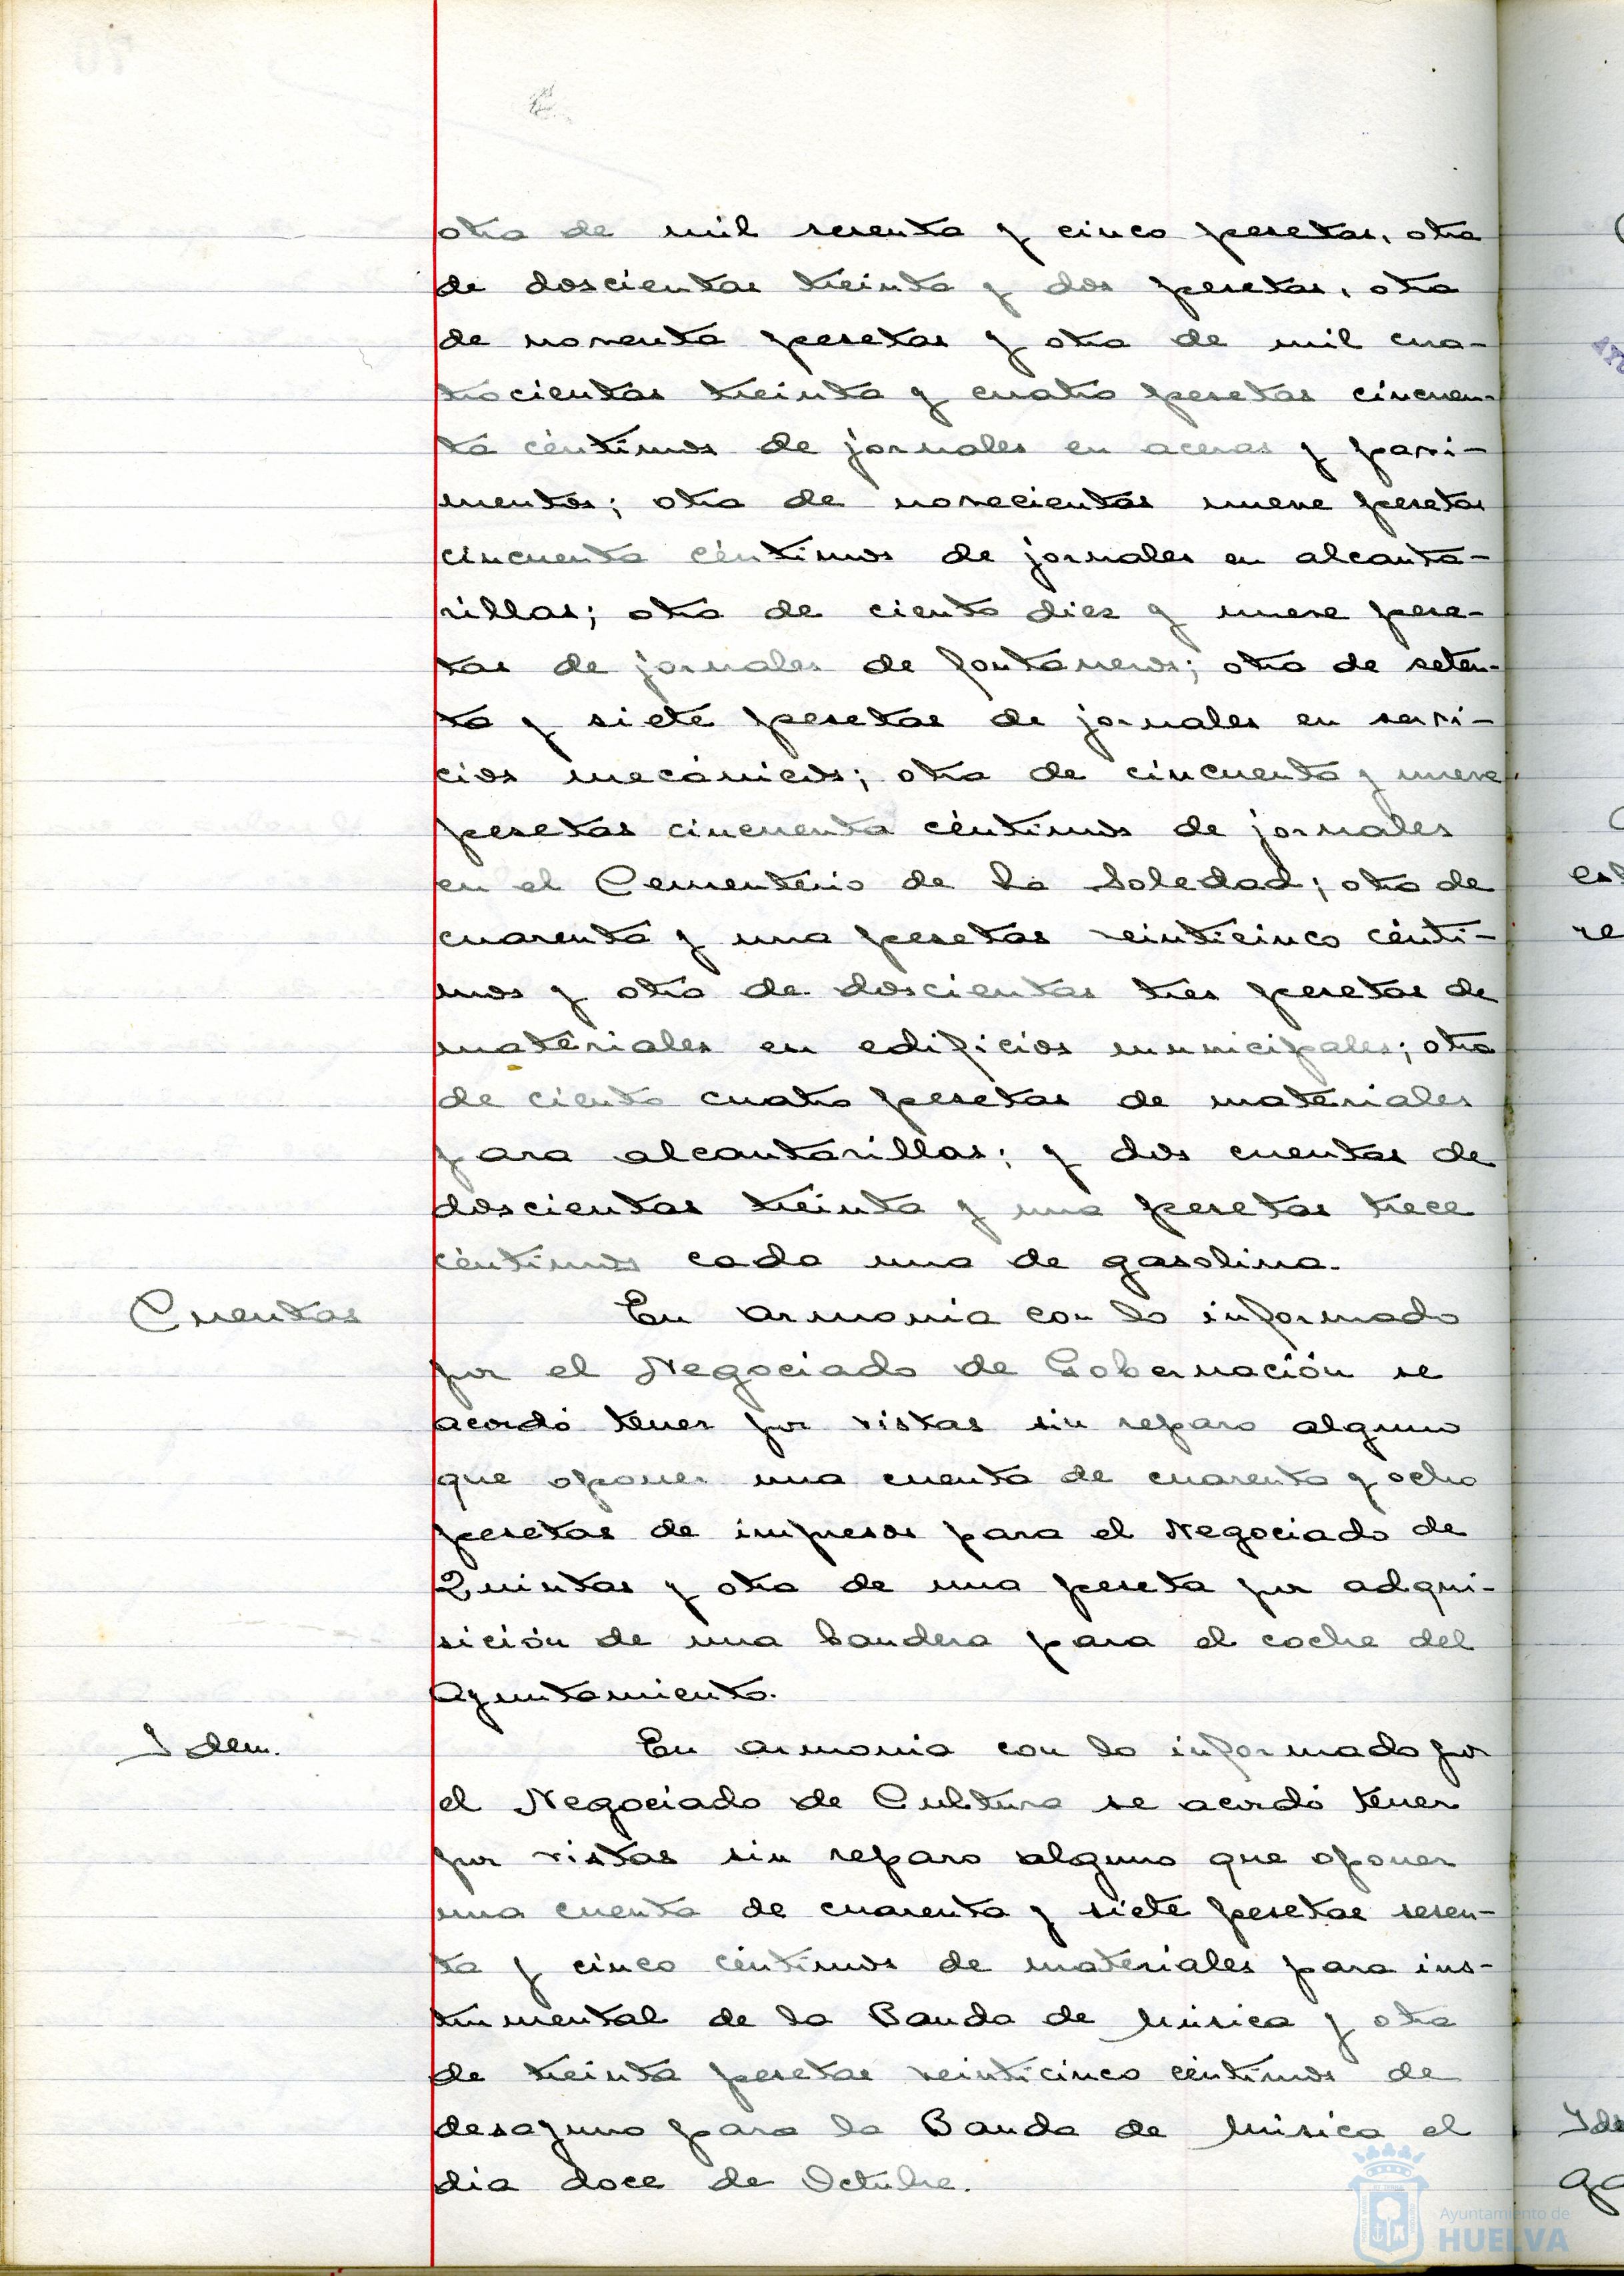 otra de mil sesenta y cinco pesetas, otra
de doscientas treinta y dos pesetas, otra
de noventa pesetas y otra de mil cua-
trocientas treinta y cuatro pesetas cincuen-
ta céntimos de jornales en aceras y pavi-
mentos; otra de novecientas nueve pesetas
cincuenta céntimos de jornales en alcanta-
rillas; otra de ciento diez y nueve pese-
tas de jornales de fontaneros; otra de seten-
ta y siete pesetas de jornales en servi-
cios mecánicos; otra de cincuenta y nueve
pesetas cincuenta céntimos de jornales
en el Cementerio de la Soledad; otra de
cuarenta y una pesetas veinticinco cénti-
mos y otra de doscientas tres pesetas de
materiales en edificios municipales; otra
de ciento cuatro pesetas de materiales
para alcantarillas; y dos cuentas de
doscientas treinta y una pesetas trece
céntimos cada una de gasolina.
Cuentas
En armonia con lo informado
por el Negociado de Gobernación se
acordó tener por vistas sin reparo alguno
que oponer una cuenta de cuarenta y ocho
pesetas de impresos para el Negociado de
Quintas y otra de una peseta por adqui-
sición de una bandera para el coche del
Ayuntamiento.
Idem.
En armonia con lo informado por
el Negociado de Cultura se acordó tener
por vistas sin reparo alguno que oponer
una cuenta de cuarenta y siete pesetas sesen-
ta y cinco céntimos de materiales para ins-
trumental de la Banda de Música y otra
de treinta pesetas veinticinco céntimos de
desayuno para la Banda de Música el
dia doce de Octubre.
Ayuntamiento de
HUELVA